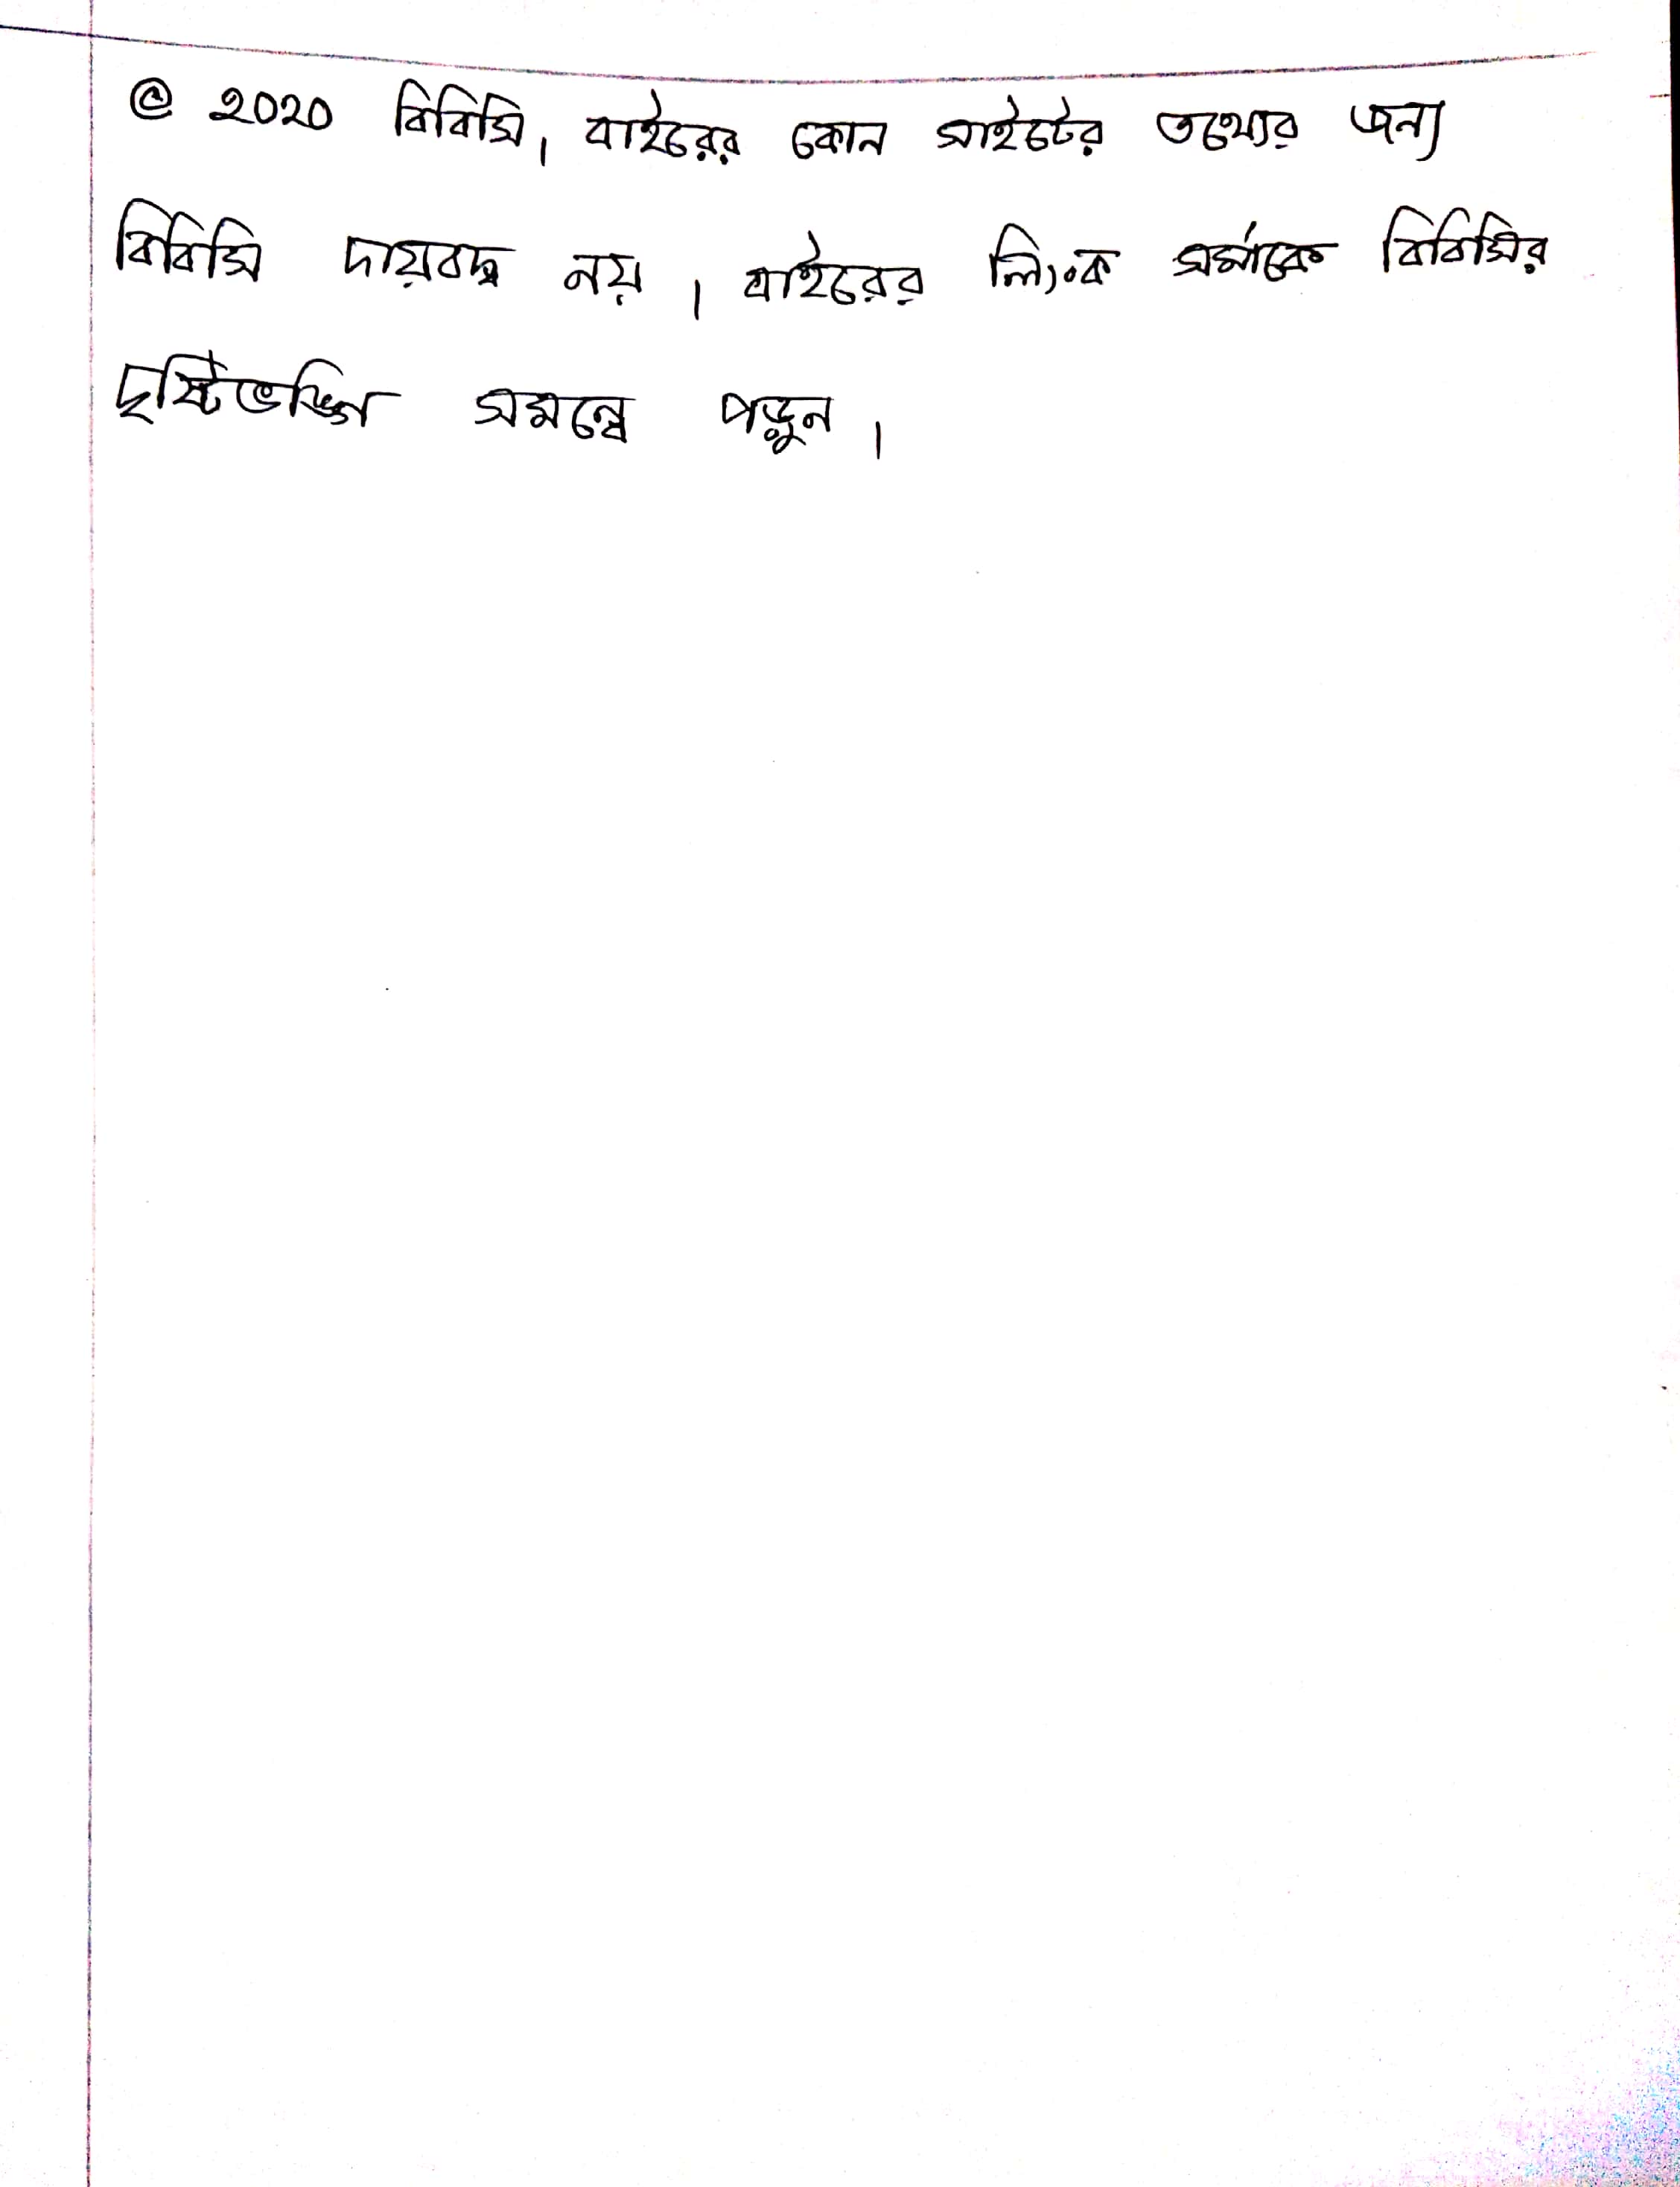 © ২০২০ বিবিসি। বাইরের কোন সাইটের তথ্যের জন্য
বিবিসি দায়বদ্ধ নয়। বাইরের লিংক সম্পর্কে বিবিসির
দৃষ্টিভঙ্গি সমন্ধে পড়ুন।